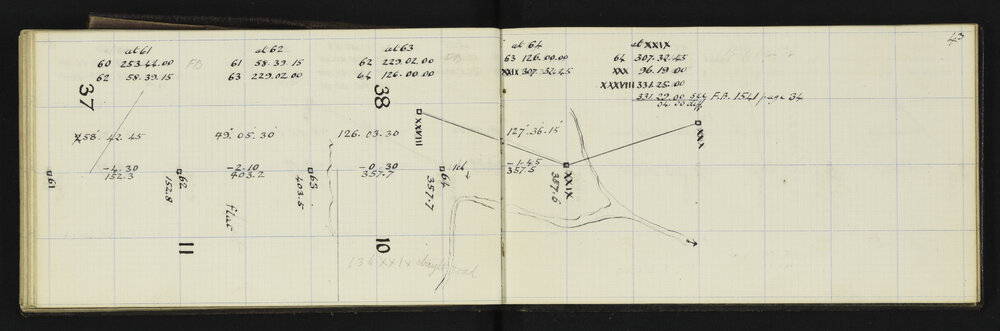 43
at 61
60 253.44.00 FB
62 58.39.15
at 62
61 58.39.15
63 229.02.00
at 63
62 229.02.00
64 126.00.00
at 64
63 126.00.00
XXIX 307.32.45
at XXIX
64 307.32.45
XXX 96.19.00
XXXVIII 331.25.00
331.29.00 see F.B. 1541 page 34
04.00 diff
37
38
XXVIII
XXX
58°.42.45
49°.05.30
126.03.30
127°.36.15"
-4.30
152.3
-2.10
403.2
-0.30
357.7
-1.45
357.5
61
62
152.8
63
403.5
64
357.7
XXIX
357.6
flat
11
10
63 to XXIX straight road